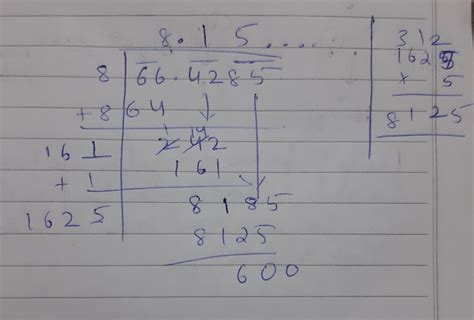 8.15.....
8 66.4285
+8 64
161 242
14
+1 161
1625 8185
8125
600
312
1625
× 5
8125